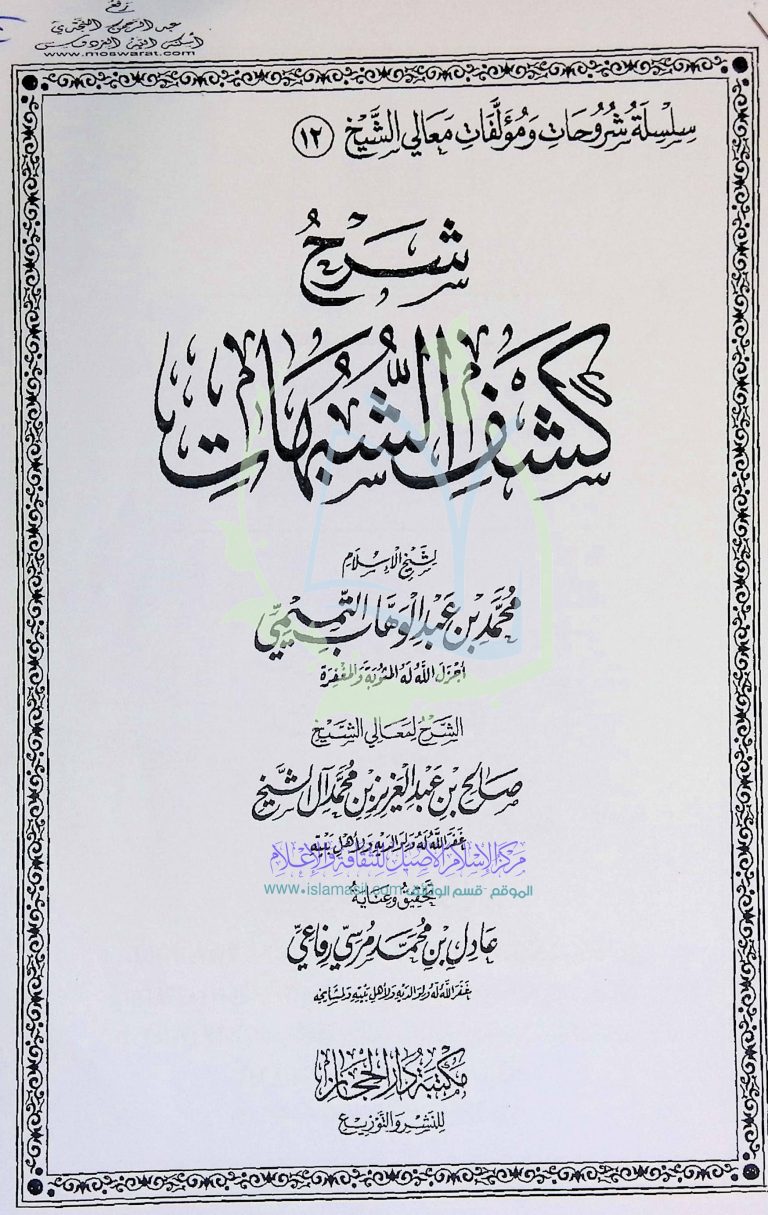 رفع
عبد الرحمن النجدي
أسكنه الله الفردوس
www.moswarat.com
سِلْسِلَةُ شُرُوحَاتِ وَمُؤَلَّفَاتِ مَعَالِي الشَّيْخِ (١٢)
شَرْحُ
كَشْفِ الشُّبُهَاتِ
لشَيْخِ الإِسْلَامِ
مُحَمَّد بْن عَبْدِ الوَهَّابِ التَّمِيمِيِّ
أَجْزَلَ اللَّهُ لَهُ المَثُوبَةَ وَالمَغْفِرَةَ
الشَّرْحُ لِمَعَالِي الشَّيْخِ
صَالِح بْن عَبْدِ العَزِيزِ بْنِ مُحَمَّد آلِ الشَّيْخِ
غَفَرَ اللَّهُ لَهُ وَلِوَالِدَيْهِ وَلِأَهْلِ بَيْتِهِ
مركز الإسلام الأصيل للثقافة والإعلام
الموقع - قسم الوثائق www.islamasil.com
تَحْقِيقُ وَعِنَايَةُ
عَادِل بْن مُحَمَّد مُرْسِي رِفَاعِي
غَفَرَ اللَّهُ لَهُ وَلِوَالِدَيْهِ وَلِأَهْلِ بَيْتِهِ وَلِمَشَايِخِهِ
مَكْتَبَةُ دَارِ الحِجَازِ
لِلنَّشْرِ وَالتَّوْزِيعِ